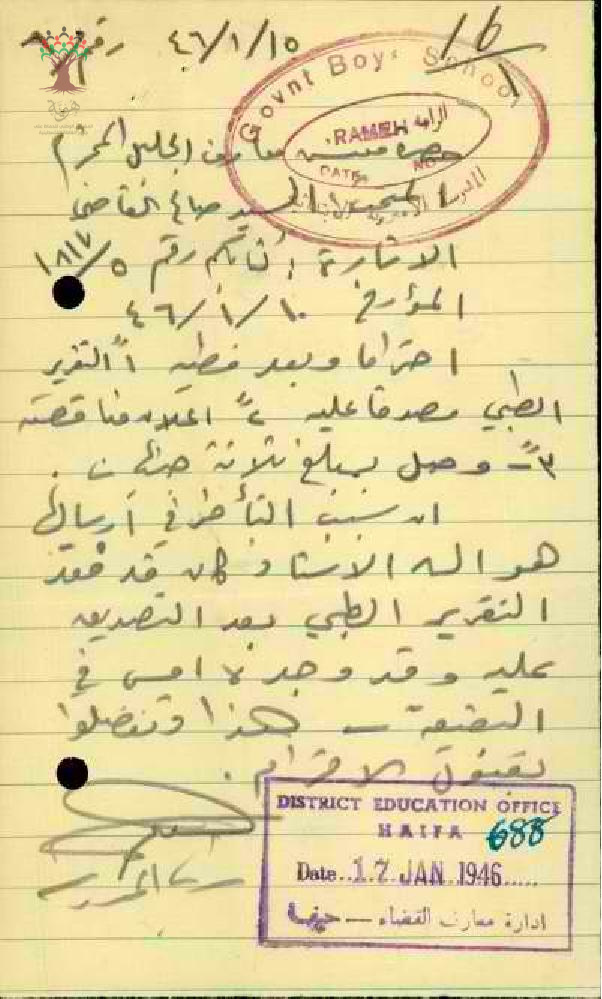 رقم ٤٦/١/١٥
16/1
Govnt Boys School
RAMEH الرامة
DATE NO
حضرة مفتش معارف الجليل المحترم
السيد صالح القاضي
الاشارة: كتابكم رقم ١٨١٧/٥
المؤرخ ٤٦/١/١٠
احتراما وبعد فطيه ١ً التقرير
الطبي مصدقا عليه ٢ً اعلان مناقصة
٣ً – وصل بمبلغ ثلاثة جنيهات .
ان سبب التأخر في ارسالها
هو ان الاستاذ كان قد فقد
التقرير الطبي بعد التصديق
عليه وقد وجده امس في
هذا وتفضلوا
بقبول الاحترام .
DISTRICT EDUCATION OFFICE
HAIFA 688
Date..17 JAN 1946.....
ادارة معارف القضاء – حيفا